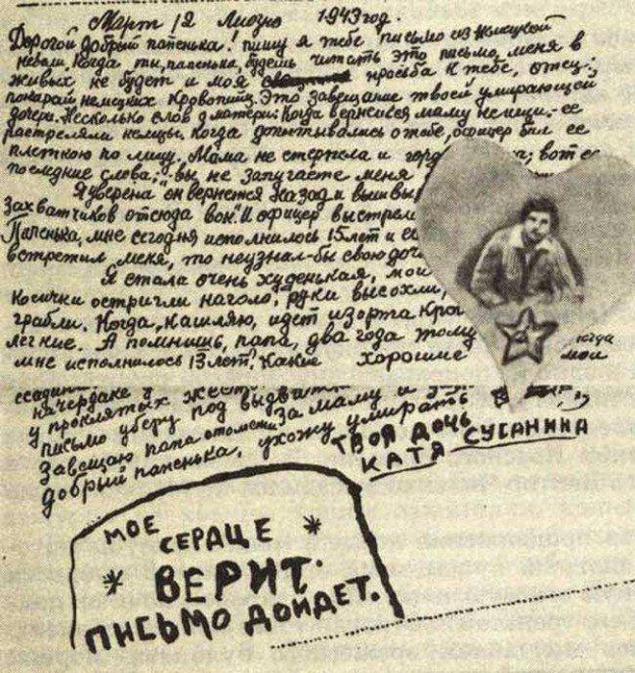 Март 12 Лиозно 1943 год.
Дорогой добрый папенька! пишу я тебе письмо из немецкой
неволи. Когда ты, папенька, будешь читать это письмо, меня в
живых не будет и моя просьба к тебе, отец:
покарай немецких кровопийц. Это завещание твоей умирающей
дочери. Несколько слов о матери: Когда вернешься маму не ищи. ее
расстреляли немцы. Когда допытывались о тебе, офицер бил ее
плеткою по лицу. Мама не стерпела и вот ее
последние слова: „вы не запугаете меня
Я уверена он вернется назад и вышвы
захватчиков отсюда вон. И офицер выстрел
Папенька, мне сегодня исполнилось 15 лет и ес
встретил меня, то неузнал-бы свою доч
Я стала очень худенькая, мои
Косички остригли наголо, руки высохли,
грабли. Когда, кашляю, идет изорта кров
легкие. А помнишь, папа, два года тому
мне исполнилось 13 лет! Какие хорошие мои
ссадин
на чердаке у
у проклятых жест
письмо уберу под выдвит
Завещаю папа отомсти за маму и
добрый папенька, ухожу умирать
ТВОЯ ДОЧЬ
КАТЯ СУСАНИНА
МОЕ
СЕРДЦЕ
ВЕРИТ.
ПИСЬМО ДОЙДЕТ.